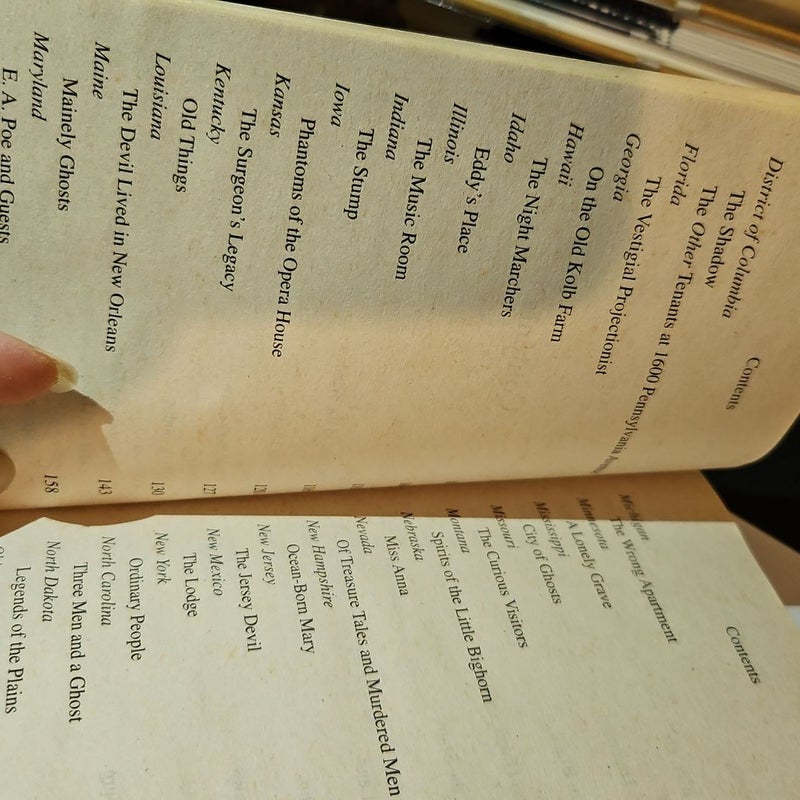 Contents
District of Columbia
The Shadow
The Other Tenants at 1600 Pennsylvania
Florida
The Vestigial Projectionist
Georgia
On the Old Kolb Farm
Hawaii
The Night Marchers
Idaho
Eddy's Place
Illinois
The Music Room
Indiana
The Stump
Iowa
Phantoms of the Opera House
Kansas
The Surgeon's Legacy 127
Kentucky
Old Things 130
Louisiana
The Devil Lived in New Orleans 143
Maine
Mainely Ghosts 158
Maryland
E. A. Poe and Guests
Contents
Michigan
The Wrong Apartment
Minnesota
A Lonely Grave
Mississippi
City of Ghosts
Missouri
The Curious Visitors
Montana
Spirits of the Little Bighorn
Nebraska
Miss Anna
Nevada
Of Treasure Tales and Murdered Men
New Hampshire
Ocean-Born Mary
New Jersey
The Jersey Devil
New Mexico
The Lodge
New York
Ordinary People
North Carolina
Three Men and a Ghost
North Dakota
Legends of the Plains